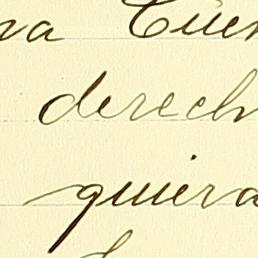 va Cuen
derech
quiera